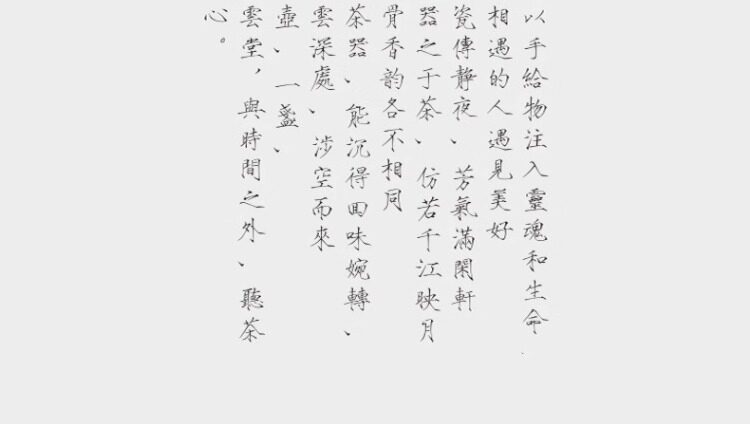 以手給物注入靈魂和生命
相遇的人遇見美好
瓷傳靜夜、芳氣滿閑軒
器之于茶、仿若千江映月
骨香韵各不相同
茶器、能沉得回味婉轉、
雲深處、涉空而來
壺、一盞、
雲堂，與時間之外、聽茶
心。